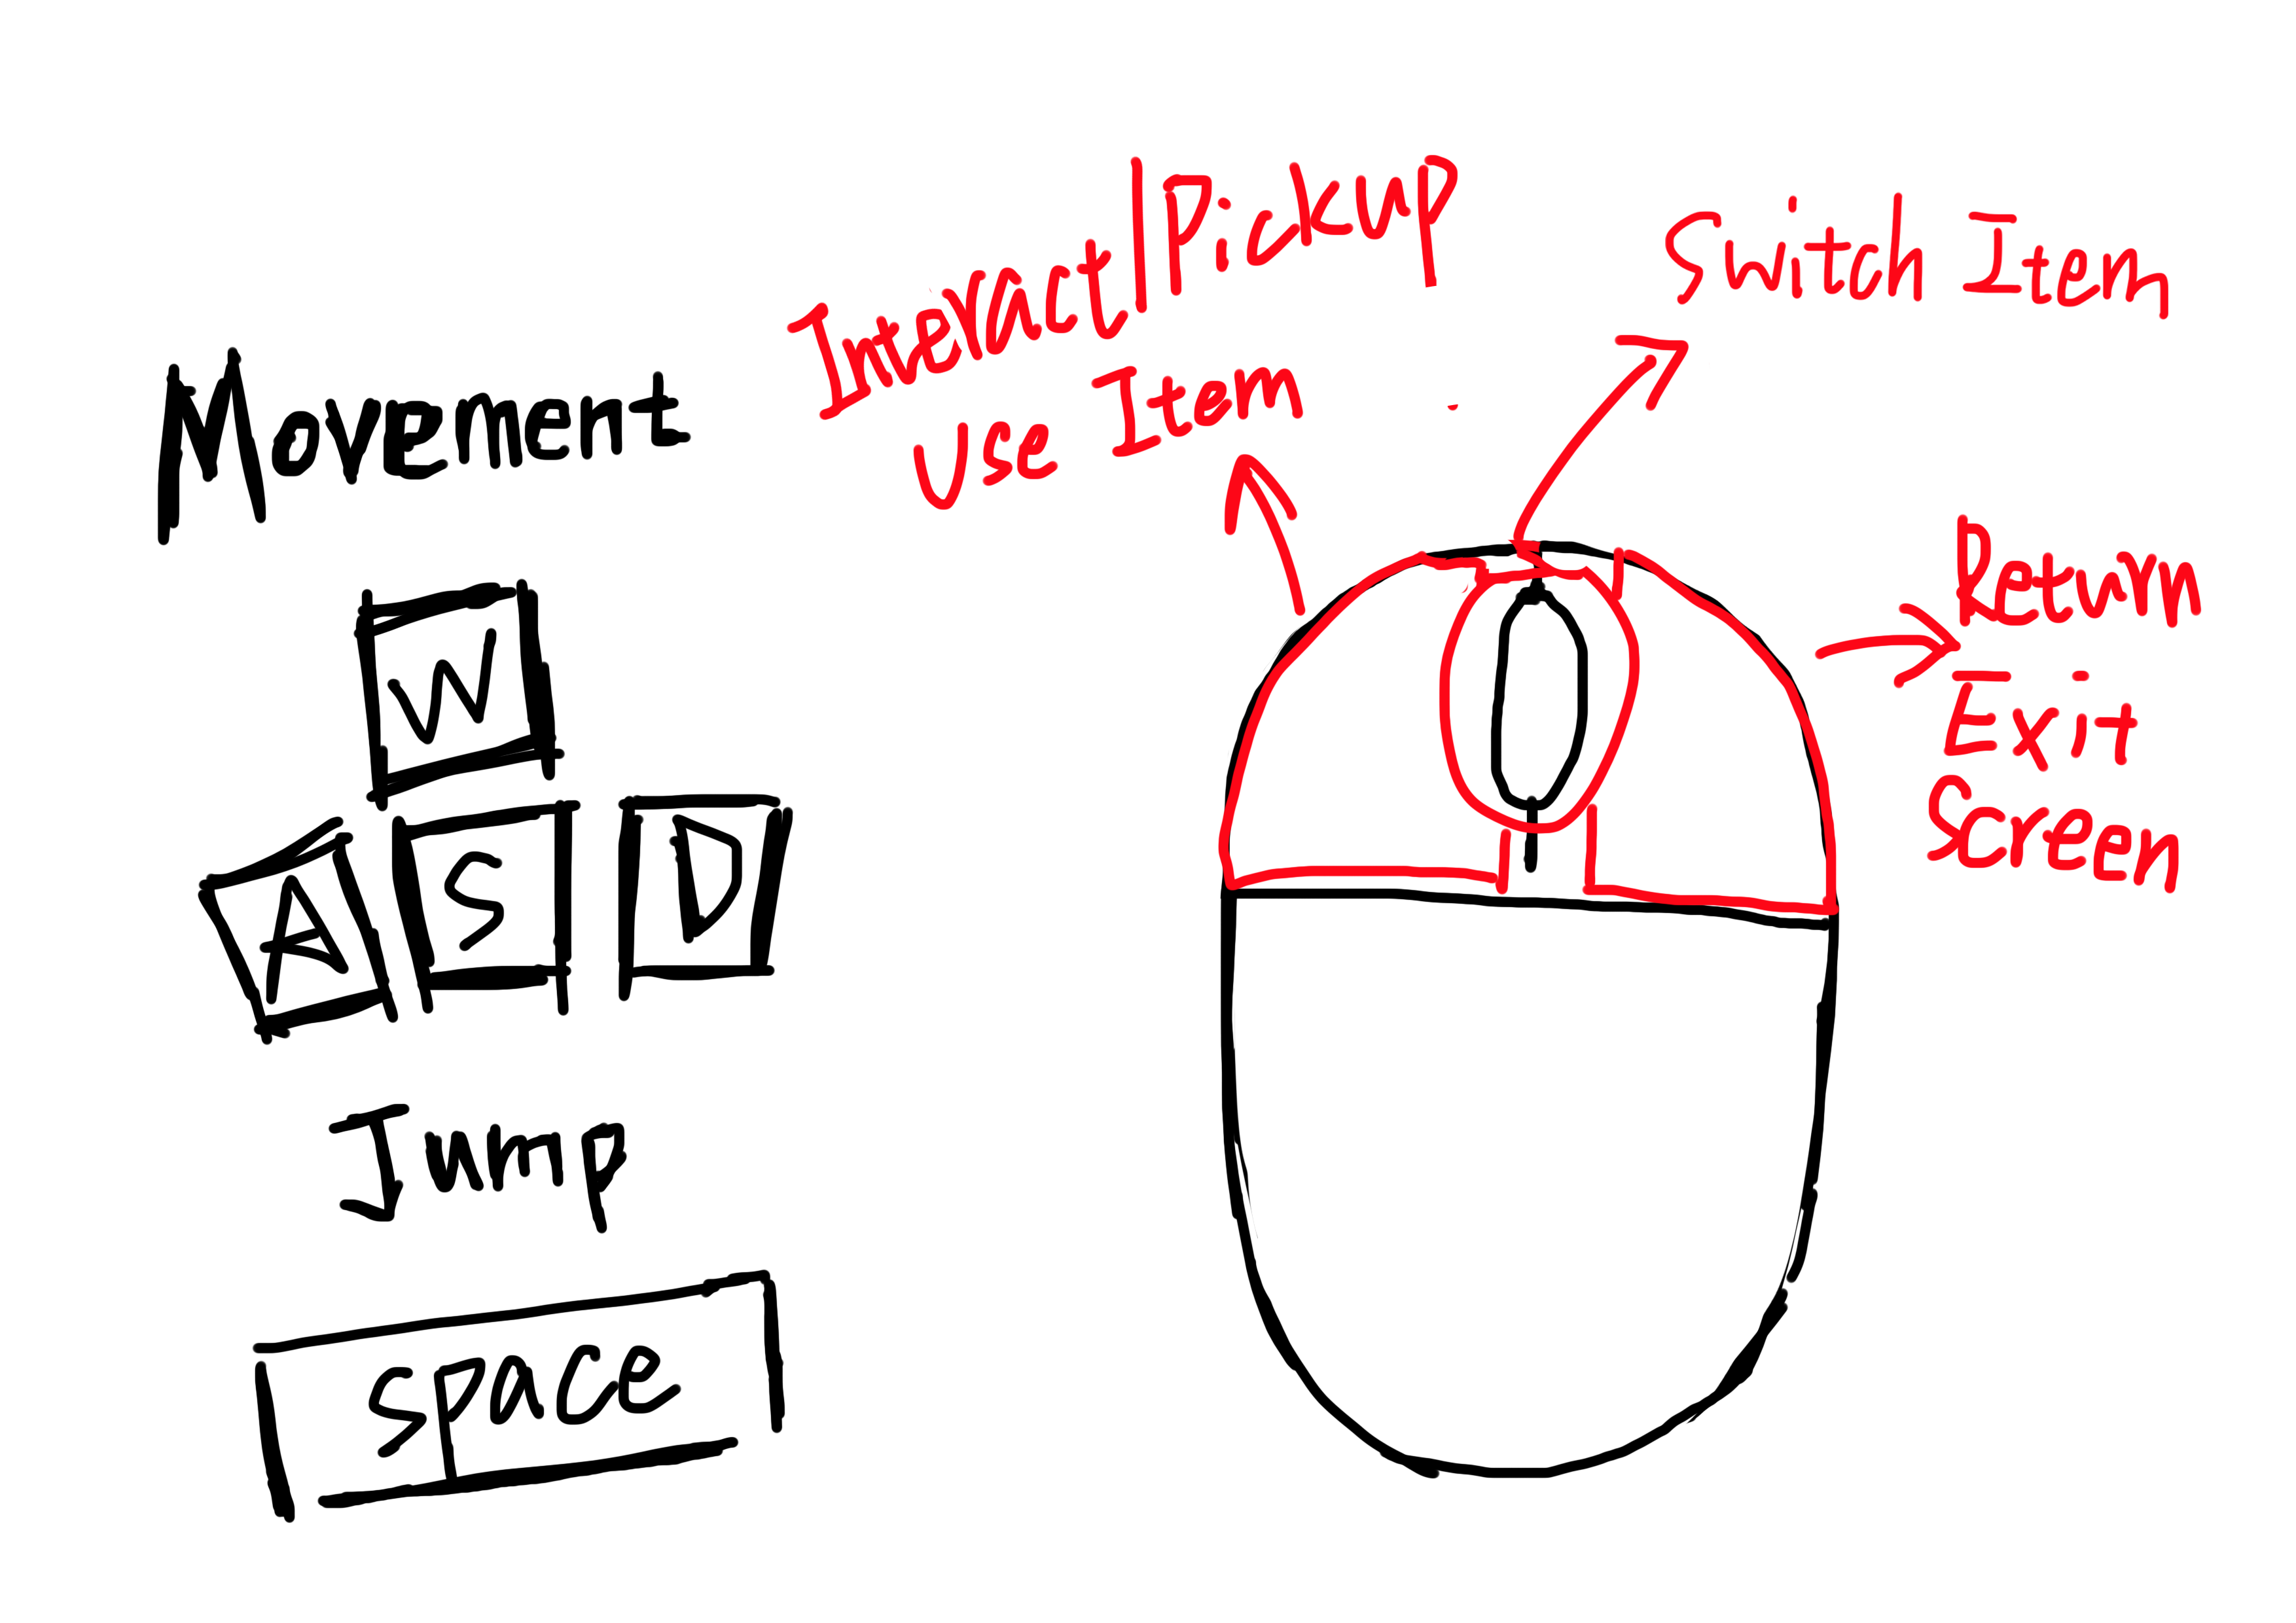 Movement
W
A S D
Jump
Space
Interact/Pickup
Use Item
Switch Item
Return
Exit
Screen